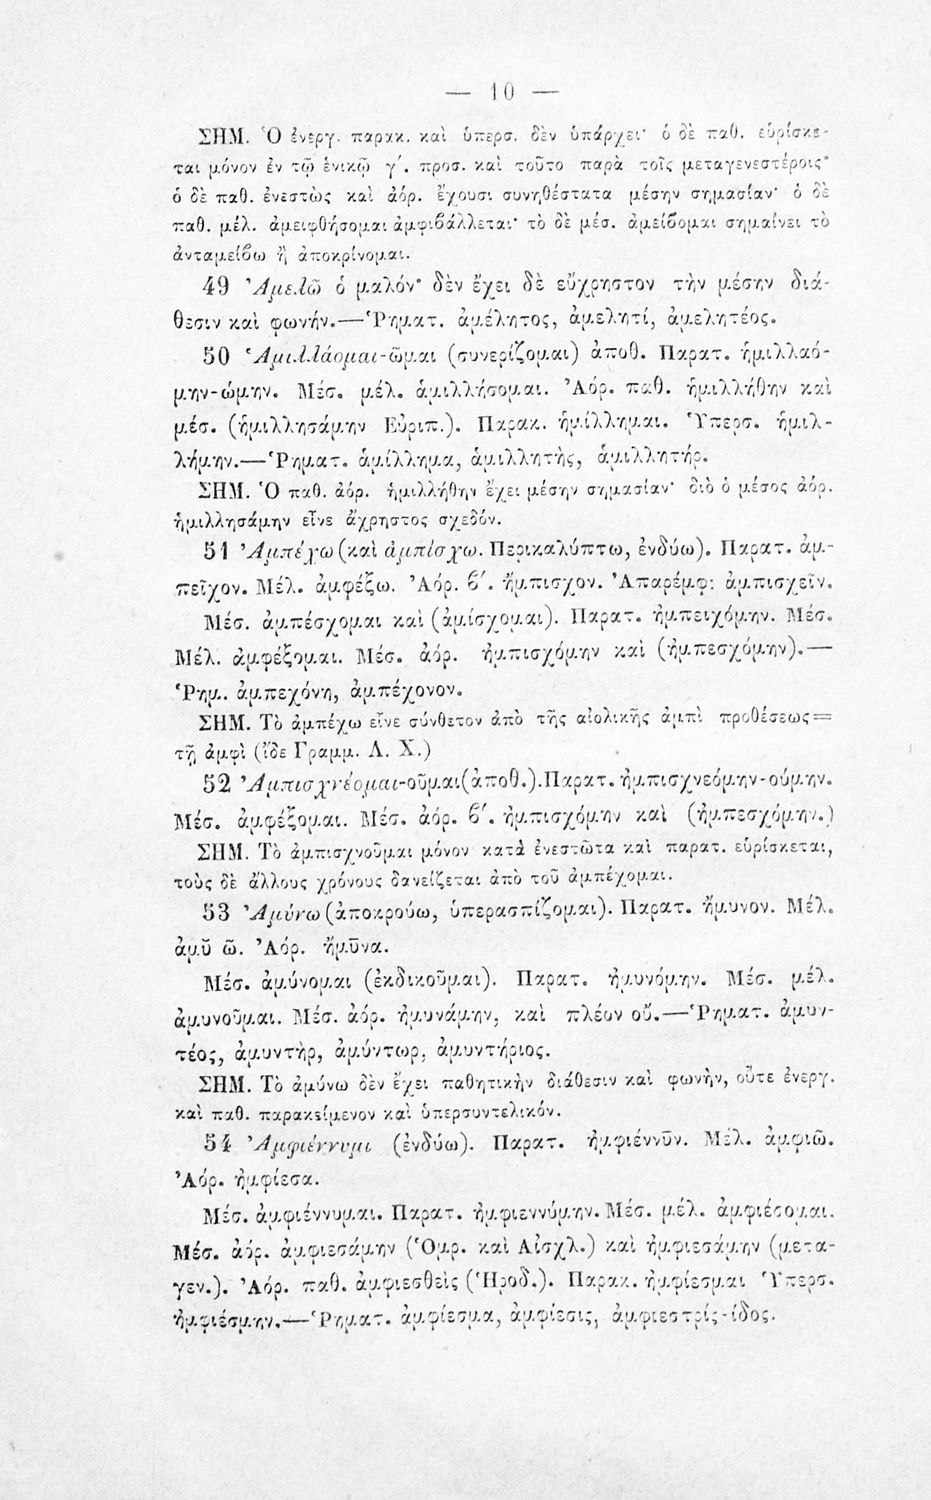 — 10 —
ΣΗΜ. Ὁ ἐνεργ. παρακ. καὶ ὑπερσ. δὲν ὑπάρχει· ὁ δὲ παθ. εὑρίσκε-
ται μόνον ἐν τῷ ἑνικῷ γ΄. προσ. καὶ τοῦτο παρὰ τοῖς μεταγενεστέροις·
ὁ δὲ παθ. ἐνεστὼς καὶ ἀόρ. ἔχουσι συνηθέστατα μέσην σημασίαν· ὁ δὲ
παθ. μέλ. ἀμειφθήσομαι ἀμφιβάλλεται· τὸ δὲ μέσ. ἀμείβομαι σημαίνει τὸ
ἀνταμείβω ἢ ἀποκρίνομαι.
49 Ἀμελῶ ὁ μαλόν· δὲν ἔχει δὲ εὔχρηστον τὴν μέσην διά-
θεσιν καὶ φωνήν.—Ῥηματ. ἀμέλητος, ἀμελητί, ἀμελητέος.
50 Ἁμιλλάομαι-ῶμαι (συνερίζομαι) ἀποθ. Παρατ. ἡμιλλαό-
μην-ώμην. Μέσ. μέλ. ἁμιλλήσομαι. Ἀόρ. παθ. ἡμιλλήθην καὶ
μέσ. (ἡμιλλησάμην Εὐριπ.). Παρακ. ἡμίλλημαι. Ὑπερσ. ἡμιλ-
λήμην.—Ῥηματ. ἁμίλλημα, ἁμιλλητὴς, ἁμιλλητήρ.
ΣΗΜ. Ὁ παθ. ἀόρ. ἡμιλλήθην ἔχει μέσην σημασίαν· διὸ ὁ μέσος ἀόρ.
ἡμιλλησάμην εἶνε ἄχρηστος σχεδόν.
51 Ἀμπέχω (καὶ ἀμπίσχω. Περικαλύπτω, ἐνδύω). Παρατ. ἀμ-
πεῖχον. Μέλ. ἀμφέξω. Ἀόρ. β΄. ἤμπισχον. Ἀπαρέμφ: ἀμπισχεῖν.
Μέσ. ἀμπέσχομαι καὶ (ἀμίσχομαι). Παρατ. ἠμπειχόμην. Μέσ.
Μέλ. ἀμφέξομαι. Μέσ. ἀόρ. ἠμπισχόμην καὶ (ἠμπεσχόμην).—
Ῥημ. ἀμπεχόνη, ἀμπέχονον.
ΣΗΜ. Τὸ ἀμπέχω εἶνε σύνθετον ἀπὸ τῆς αἰολικῆς ἀμπὶ προθέσεως=
τῇ ἀμφὶ (ἴδε Γραμμ. Λ. Χ.)
52 Ἀμπισχνέομαι-οῦμαι(ἀποθ.).Παρατ. ἠμπισχνεόμην-ούμην.
Μέσ. ἀμφέξομαι. Μέσ. ἀόρ. β΄. ἠμπισχόμην καὶ (ἠμπεσχόμην.)
ΣΗΜ. Τὸ ἀμπισχνοῦμαι μόνον κατὰ ἐνεστῶτα καὶ παρατ. εὑρίσκεται,
τοὺς δὲ ἄλλους χρόνους δανείζεται ἀπὸ τοῦ ἀμπέχομαι.
53 Ἀμύνω (ἀποκρούω, ὑπερασπίζομαι). Παρατ. ἤμυνον. Μέλ.
ἀμῦ ῶ. Ἀόρ. ἤμῡνα.
Μέσ. ἀμύνομαι (ἐκδικοῦμαι). Παρατ. ἠμυνόμην. Μέσ. μέλ.
ἀμυνοῦμαι. Μέσ. ἀόρ. ἠμυνάμην, καὶ πλέον οὔ.—Ῥηματ. ἀμυν-
τέος, ἀμυντὴρ, ἀμύντωρ, ἀμυντήριος.
ΣΗΜ. Τὸ ἀμύνω δὲν ἔχει παθητικὴν διάθεσιν καὶ φωνὴν, οὔτε ἐνεργ.
καὶ παθ. παρακείμενον καὶ ὑπερσυντελικόν.
54 Ἀμφιέννυμι (ἐνδύω). Παρατ. ἠμφιέννῡν. Μέλ. ἀμφιῶ.
Ἀόρ. ἠμφίεσα.
Μέσ. ἀμφιέννυμαι. Παρατ. ἠμφιεννύμην. Μέσ. μέλ. ἀμφιέσομαι.
Μέσ. ἀόρ. ἀμφιεσάμην (Ὁμρ. καὶ Αἰσχλ.) καὶ ἠμφιεσάμην (μετα-
γεν.). Ἀόρ. παθ. ἀμφιεσθεὶς (Ἡροδ.). Παρακ. ἠμφίεσμαι Ὑπερσ.
ἠμφιέσμην.—Ῥηματ. ἀμφίεσμα, ἀμφίεσις, ἀμφιεστρίς-ίδος.